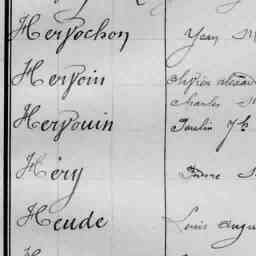 Hervochon Jean M
Hervoin
Charles
Hervouin Paulin
Héry Pierre
Heude Louis Augu